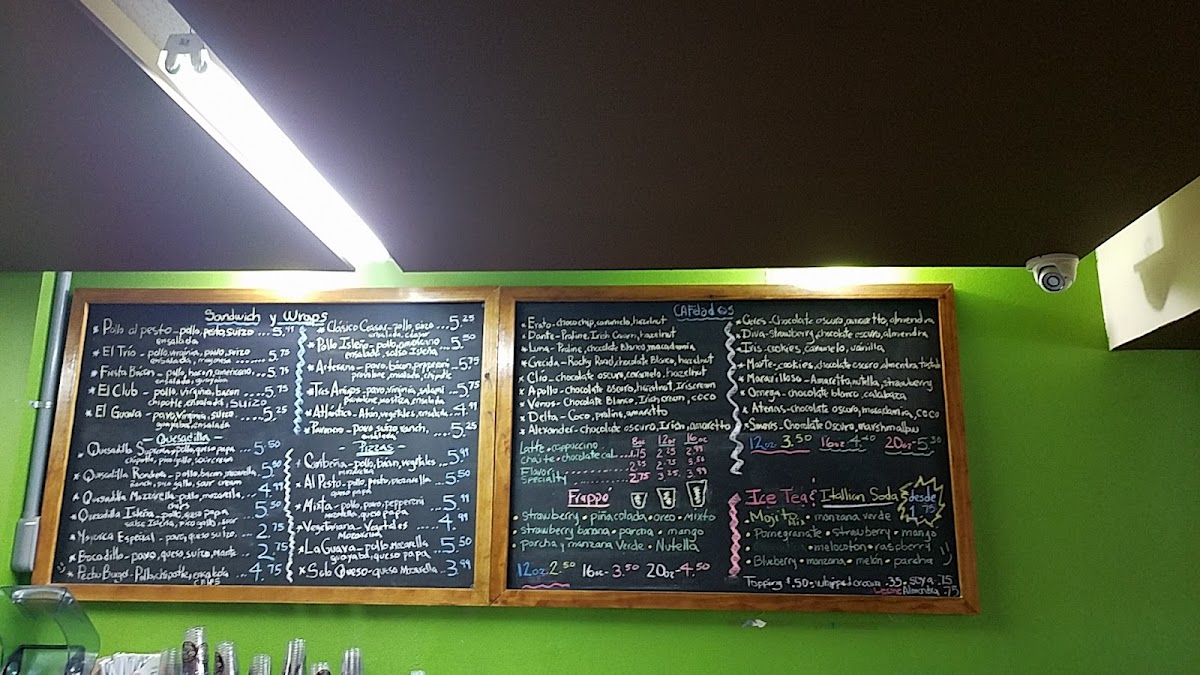 Sandwich y Wraps
* Pollo al pesto - pollo, pesto, suizo ... 5.99
ensalada
* El Trio - pollo, virginia, pavo, suizo ... 5.75
ensalada, mayonesa
* Fiesta Bacon - pollo, bacon, americano, ... 5.75
ensalada, guayaba
* El Club - pollo, virginia, bacon ... 5.75
chipotle, ensalada, suizo
* El Guava - pavo, virginia, suizo ... 5.25
guayaba, ensalada
* Clásico Cesar - pollo, suizo ... 5.25
ensalada
* Pollo Isleño - pollo, americano ... 5.50
ensalada, salsa Isleña
* Artesano - pavo, bacon, pepperoni ... 5.75
provolone, ensalada, chipotle
* Tres Amigos - pavo, virginia, salami ... 5.75
provolone, mostaza, ensalada
* Atlántico - Atún, vegetales, ensalada ... 4.99
* Pavoroso - pavo, suizo, ranch, ... 5.25
ensalada
- Quesadilla -
* Quesadilla Suprema - pollo, queso papa ... 5.50
chipotle, pico gallo, sour cream
* Quesadilla Ranchera - pollo, bacon, mozarella ... 5.50
ranch, pico gallo, sour cream
* Quesadilla Mozzarella - pollo, mozarella ... 4.99
* Quesadilla Isleña - pollo, queso papa ... 5.50
salsa Isleña, pico gallo, sour
* Mallorca Especial - pavo, queso, suizo ... 2.75
* Bocadillo - pavo, queso, suizo, Manta ... 2.75
* Pechu Bagel - Pollo, chipotle, ensalada ... 4.75
- Pizzas -
* Caribeña - pollo, bacon, vegetales ... 5.99
mozarella
* Al Pesto - pollo, pesto, mozarella ... 5.50
queso papa
* Mixta - pollo, pavo, pepperoni ... 5.99
mozarella, queso papa
* Vegetariana - Vegetales ... 4.99
Mozarella
* La Guava - pollo, mozarella ... 5.50
guayaba, queso papa
* Solo Queso - queso Mozarella ... 3.99
CAFdad@s
* Erato - choco chip, caramelo, hazelnut
* Dante - Praline, Irish Cream, hazelnut
* Luna - Praline, chocolate Blanco, macadamia
* Grecida - Rocky Road, chocolate Blanco, hazelnut
* Clío - chocolate oscuro, caramelo, hazelnut
* Apollo - chocolate oscuro, hazelnut, Iriscream
* Venus - Chocolate Blanco, Irish cream, coco
* Delta - Coco, praline, amaretto
* Alexander - chocolate oscuro, Irish, amaretto
* Ceres - Chocolate oscuro, amaretto, almendra
* Diva - Strawberry, chocolate oscuro, almendra
* Iris - cookies, caramelo, vainilla
* Marte - cookies, chocolate oscuro, almendra Tostada
* Maravilloso - Amaretto, nutella, strawberry
* Omega - chocolate blanco, calabaza
* Atenas - chocolate oscuro, macadamia, coco
* Smores - Chocolate oscuro, marshmallow
12oz 3.50 16oz 4.40 20oz - 5.50
8oz 12oz 16oz
Latte · cappuccino
chaite · chocolate cal 1.75 2.55 2.99
Flavor 2.25 2.75 3.50
Specialty 2.75 3.25 3.99
Frappo'
• Strawberry • piña colada • oreo • Mixto
• strawberry banana • parcha • mango
• parcha y manzana Verde • Nutella
12oz 2.50 16oz - 3.50 20oz - 4.50
Ice Tea & Itallian Soda
desde 1.75
• Mojito • manzana verde
• Pomegranate • strawberry • mango
• melocoton • raspberry
• Blueberry • manzana • melón • parcha
Topping $.50 - whipped cream .35 - soya .75
Leche Almendra .75